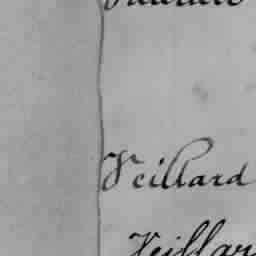 Veillard
Veillar